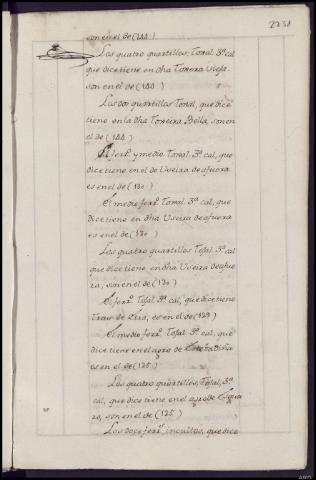 2238
son en el de (144).
Los quatro quartillos, Tomal. 3ª cal,
que dice tiene en dha Torreira Vieja.
son en el de (144)
Los dos quartillos Tomal, que dice
tiene en la dha Torreira Bella, son en
el de (144)
El ferr.º y medio Tomal. 3ª cal, que
dice tiene en el de Useira de afuora
es en el de (130)
El medio ferr.º Tomal. 3ª cal, que
dice tiene en dha Useira de afuora
es en el de (130)
Los quatro quartillos Tofal. 3ª cal
que dice tiene en dha Useira de afuo
ra, son en el de (130)
El ferr.º Tofal. 3ª cal, que dice tiene
Tras de Eria, es en el de (129)
El medio ferr.º Tofal. 3ª cal, que
dice tiene en el agro de
es en el de (125)
Los quatro quartillos, Tofal, 3ª
cal, que dice tiene en el agro de
ro, son en el de (125)
Los doce ferr.º incultos, que dice